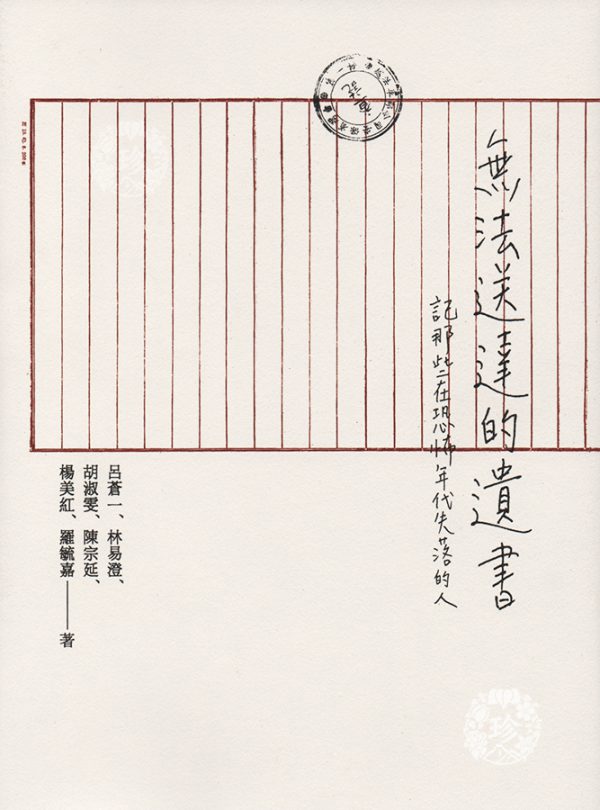 無法送達的遺書
記那些在恐怖年代失落的人
呂蒼一、林易澄、
胡淑雯、陳宗延、
楊美紅、羅毓嘉——著
珍